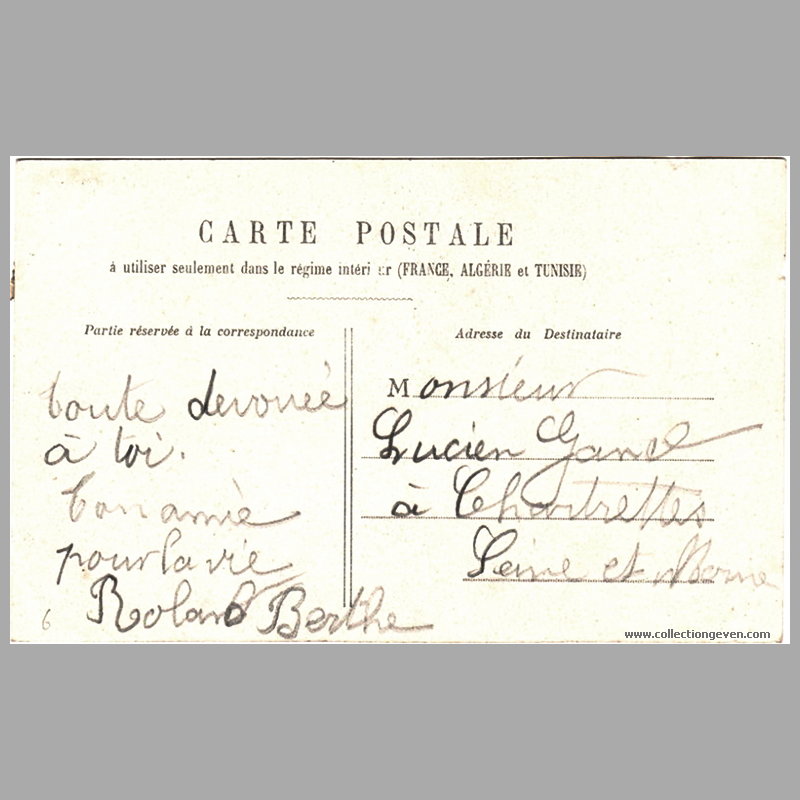 CARTE POSTALE
à utiliser seulement dans le régime intéri ur (FRANCE, ALGÉRIE et TUNISIE)
Partie réservée à la correspondance
toute devouée
à toi.
ton amie
pour la vie
Roland Berthe
6
Adresse du Destinataire
Monsieur
Lucien
à Chartrettes
Seine et Marne
www.collectiongeven.com